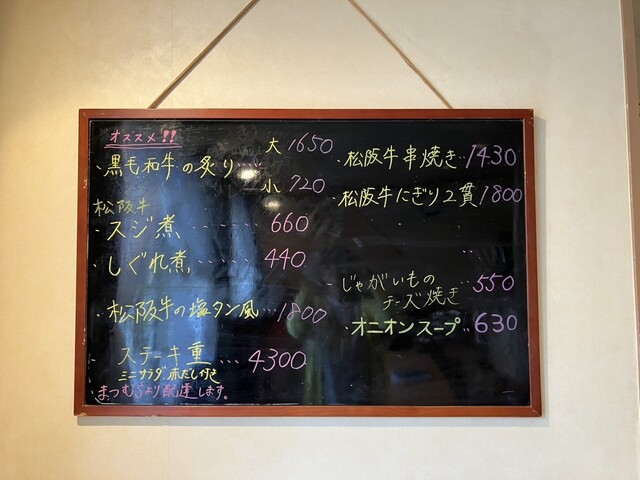 オススメ!!
・黒毛和牛の炙り‥‥ 大 1650
小 720
松阪牛
・スジ煮‥‥‥ 660
・しぐれ煮‥‥‥ 440
・松阪牛の塩タン風‥‥1800
・ステーキ重‥‥4300
ミニサラダ 赤だし付き
まつむらより配達します。
・松阪牛串焼き‥1430
・松阪牛にぎり2貫 1800
・じゃがいもの
チーズ焼き‥‥550
・オニオンスープ 630